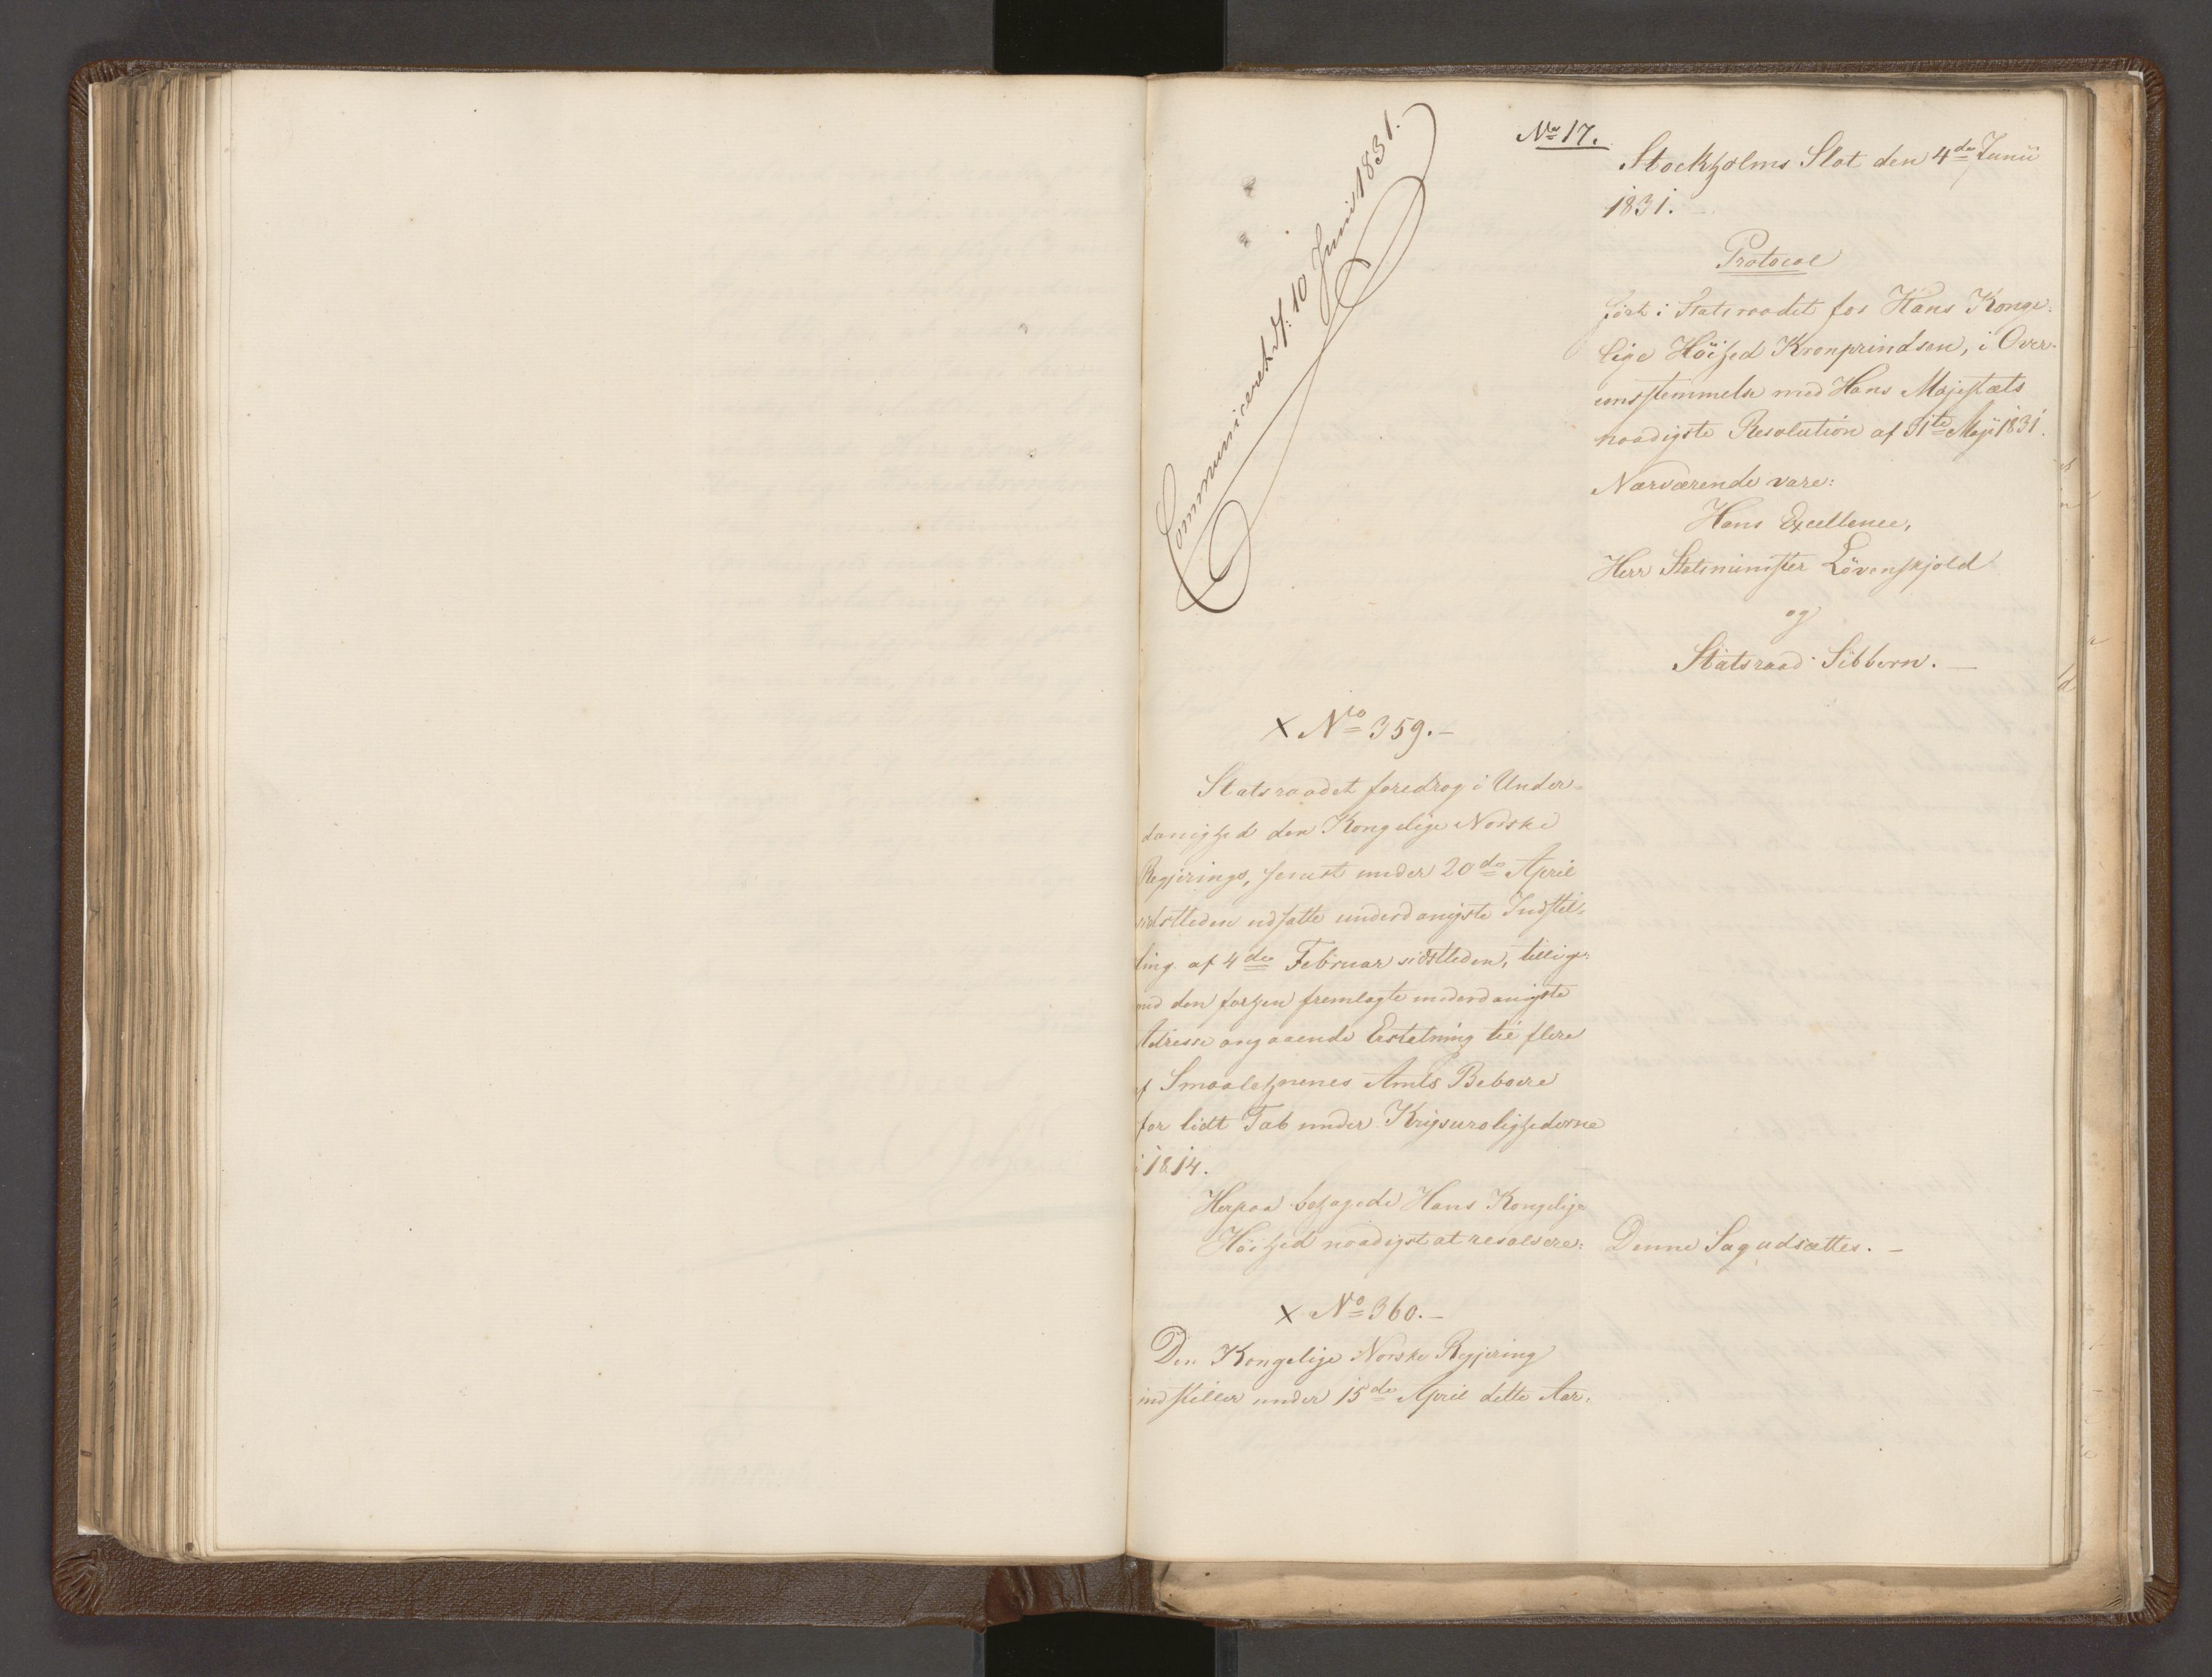 No 17.
Stockholms Slot den 4de Junii
1831. -
Protocol
ført i Statsraadet for Hans Konge-
lige Höihed Kronprindsen, i Over-
eensstemmelse med Hans Majestæts
naadigste Resolution af 31te Maji 1831.
Nærværende vare:
Hans Excellence,
Herr Statsminister Lövenskjold
og
Statsraad Sibbern. -
Communiceret d. 10 Juni 1831.
x No 359. -
Statsraadet foredrog i Under-
danighed den Kongelige Norske
Regjerings, senest under 20de April
sidstleden udsatte underdanigste Indstil-
ling af 4de Februar sidstleden, tillige-
med den forhen fremlagte underdanigste
Adresse angaaende Erstatning til flere
af Smaalehnenes Amts Beboere
for lidt Tab under Krigsurolighederne
i 1814.
Herpaa behagede Hans Kongelige
Höihed naadigst at resolvere:
Denne Sag udsættes. -
x No 360. -
Den Kongelige Norske Regjering
indstiller under 15de April dette Aar,